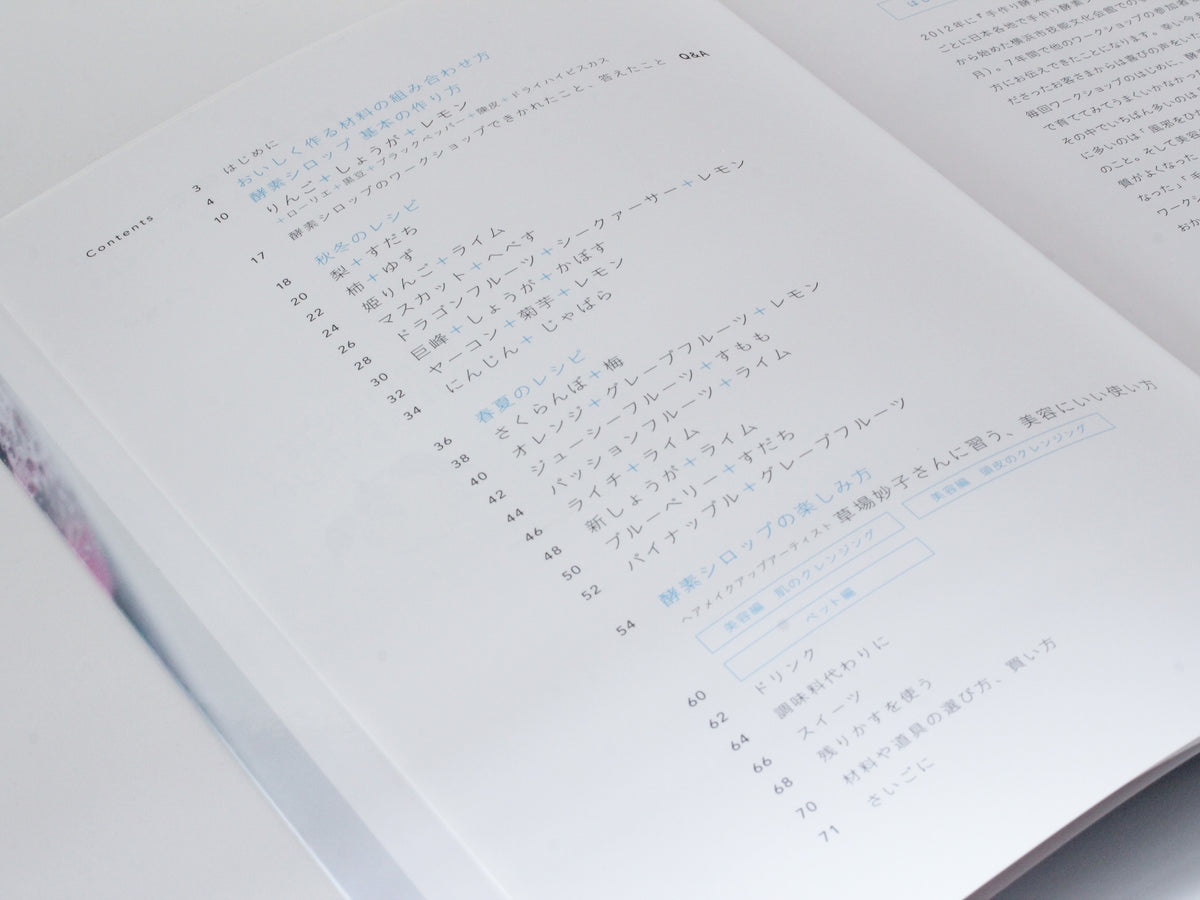 Contents
3 はじめに
4 おいしく作る材料の組み合わせ方
10 酵素シロップ 基本の作り方
りんご+しょうが+レモン
+ローリエ+黒豆+ブラックペッパー+陳皮+ドライハイビスカス
17 酵素シロップのワークショップできかれたこと、答えたこと Q&A
18 秋冬のレシピ
20 梨+すだち
22 柿+ゆず
24 姫りんご+ライム
26 マスカット+へべす
28 ドラゴンフルーツ+シークァーサー+レモン
30 巨峰+しょうが+かぼす
32 ヤーコン+菊芋+レモン
34 にんじん+じゃばら
36 春夏のレシピ
38 さくらんぼ+梅
40 オレンジ+グレープフルーツ+レモン
42 ジューシーフルーツ+すもも
44 パッションフルーツ+ライム
46 ライチ+ライム
48 新しょうが+ライム
50 ブルーベリー+すだち
52 パイナップル+グレープフルーツ
54 酵素シロップの楽しみ方
ヘアメイクアップアーティスト 草場妙子さんに習う、美容にいい使い方
美容編 肌のクレンジング 美容編 頭皮のクレンジング
60 ペット編
62 ドリンク
64 調味料代わりに
66 スイーツ
68 残りかすを使う
70 材料や道具の選び方、買い方
71 さいごに
2012年に『手作り酵素
ごとに日本各地で手作り酵素
から始めた横浜市技能文化会館での
月)。7年間で他のワークショップの参加者
方にお伝えできたことになります。幸い今
ださったお客さまからは喜びの声をいた
毎回ワークショップのはじめに、酵
で育ててみてうまくいかなかっ
その中でいちばん多いのは
に多いのは「風邪をひか
のこと。そして美容
質がよくなった
なった」「手
ワークシ
おか